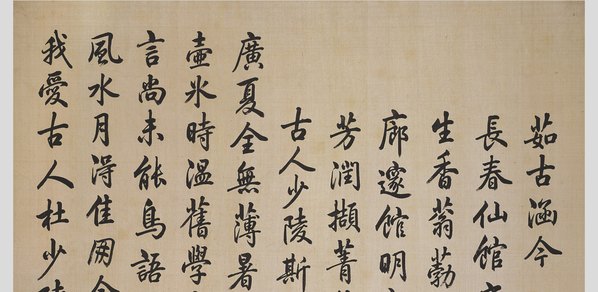 茹古涵今
長春仙館
生香蓊勃
廊邃館明
芳潤擷菁
古人少陵斯
廣夏全無薄暑
壺氷時溫舊學
言尚未能鳥語
風水月淂佳
我愛古人杜少陵